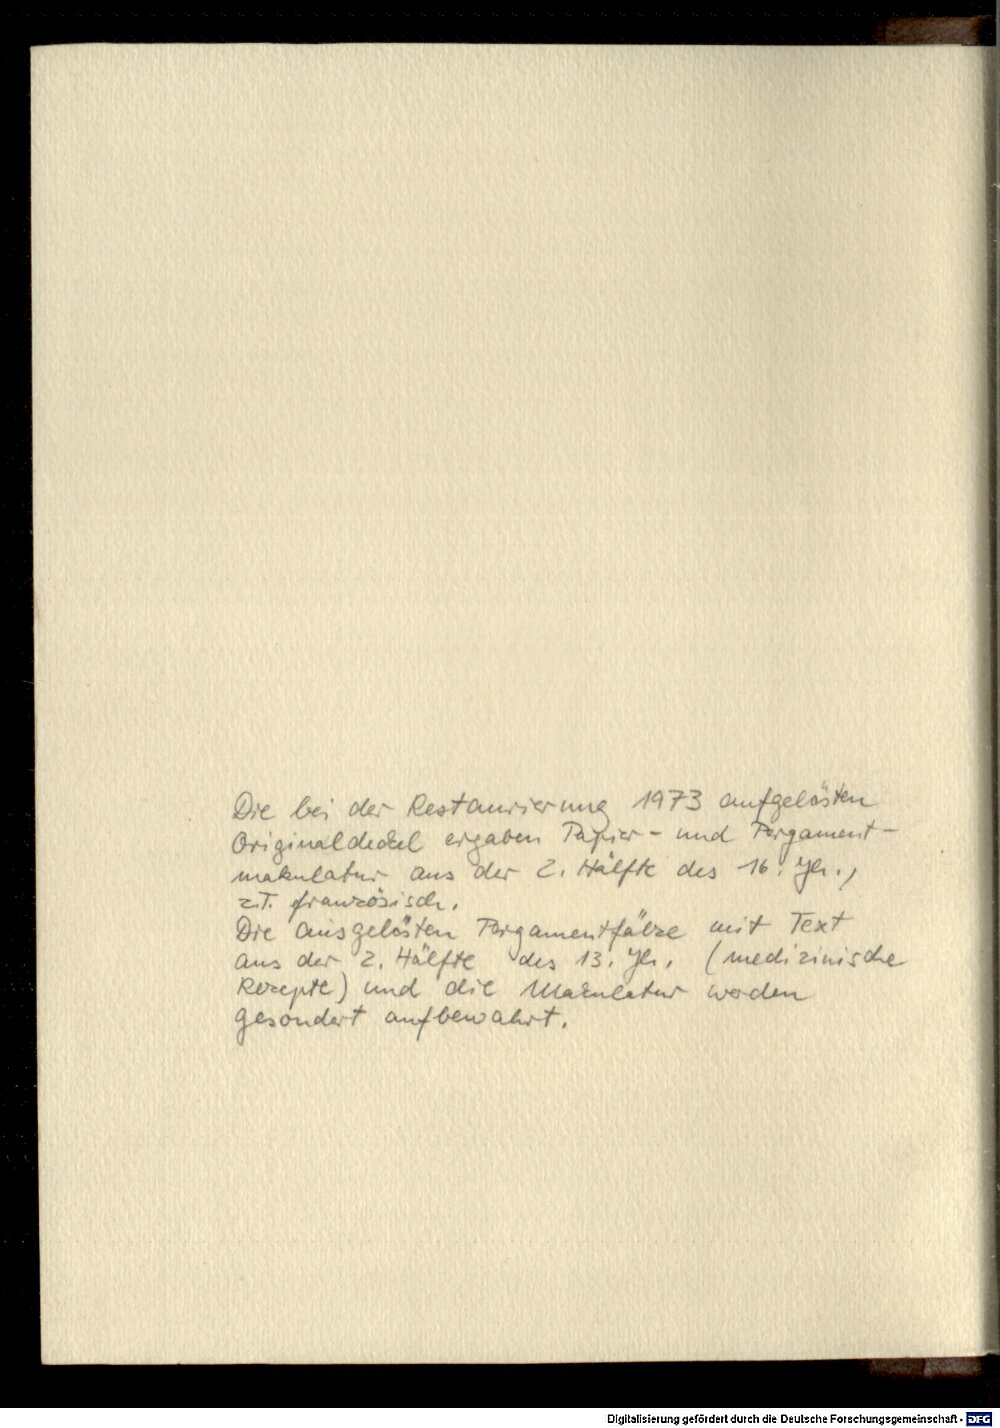 Die bei der Restaurierung 1973 aufgelösten
Originaldeckel ergaben Papier- und Pergament-
makulatur aus der 2. Hälfte des 16. Jh.,
z.T. französisch.
Die ausgelösten Pergamentfälze mit Text
aus der 2. Hälfte des 13. Jh. (medizinische
Rezepte) und die Makulatur werden
gesondert aufbewahrt.
Digitalisierung gefördert durch die Deutsche Forschungsgemeinschaft - DFG